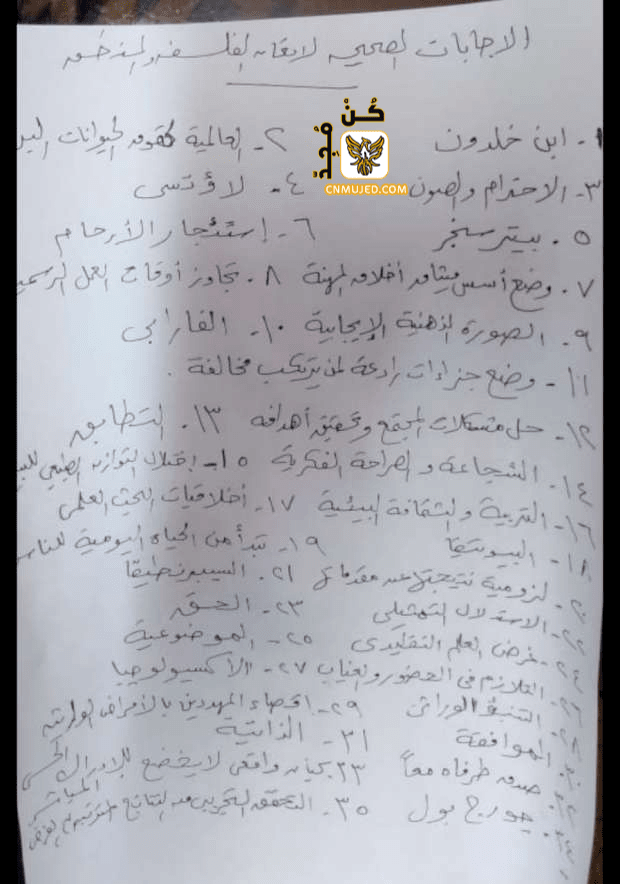 الاجابات الصحيحه لامتحان الفلسفه والمنطق
كُنْ مُجِدّ
CNMUJED.COM
١- ابن خلدون ٢- العالمية لحقوق الحيوانات
٣- الاحترام والصون ٤- لاؤتسى
٥. بيتر سنجر ٦- إستئجار الأرحام
٧. وضع أسس ميثاق أخلاق المهنة ٨. تجاوز أوقات العمل الرسمي
٩. الصورة الذهنية الإيجابية ١٠- الفارابي
١١- وضع جزاءات رادعة لمن يرتكب مخالفة .
١٢- حل مشكلات المجتمع وتحقيق أهدافه ١٣. التطابق
١٤- الشجاعة والصراحة الفكرية ١٥- إختلال التوازن الطبيعي
١٦- التربية والثقافة البيئية ١٧. أخلاقيات البحث العلمى
١٨- البيوتيقا ١٩- تبدأ من الحياه اليومية للناس
٢٠- لزومية نتيجتها عن مقدماتها ٢١. السيبرنطيقا
٢٢- الاستدلال التمثيلى ٢٣- الصدق
٢٤- غرض العلم التقليدى ٢٥- الموضوعية
٢٦- التلازم فى الحضور والغياب ٢٧- الأكسيولوجيا
٢٨- التنبؤ الوراثى ٢٩- احصاء المهددين بالأمراض الوراثية
٣٠- الموافقة ٣١- الذاتية
٣٢- صدق طرفاه معاً ٣٣- كيان واقعى لا يخضع للإدراك الحسى المباشر
٣٤- جورج بول ٣٥- التحقق التجريبى من النتائج المترتبة